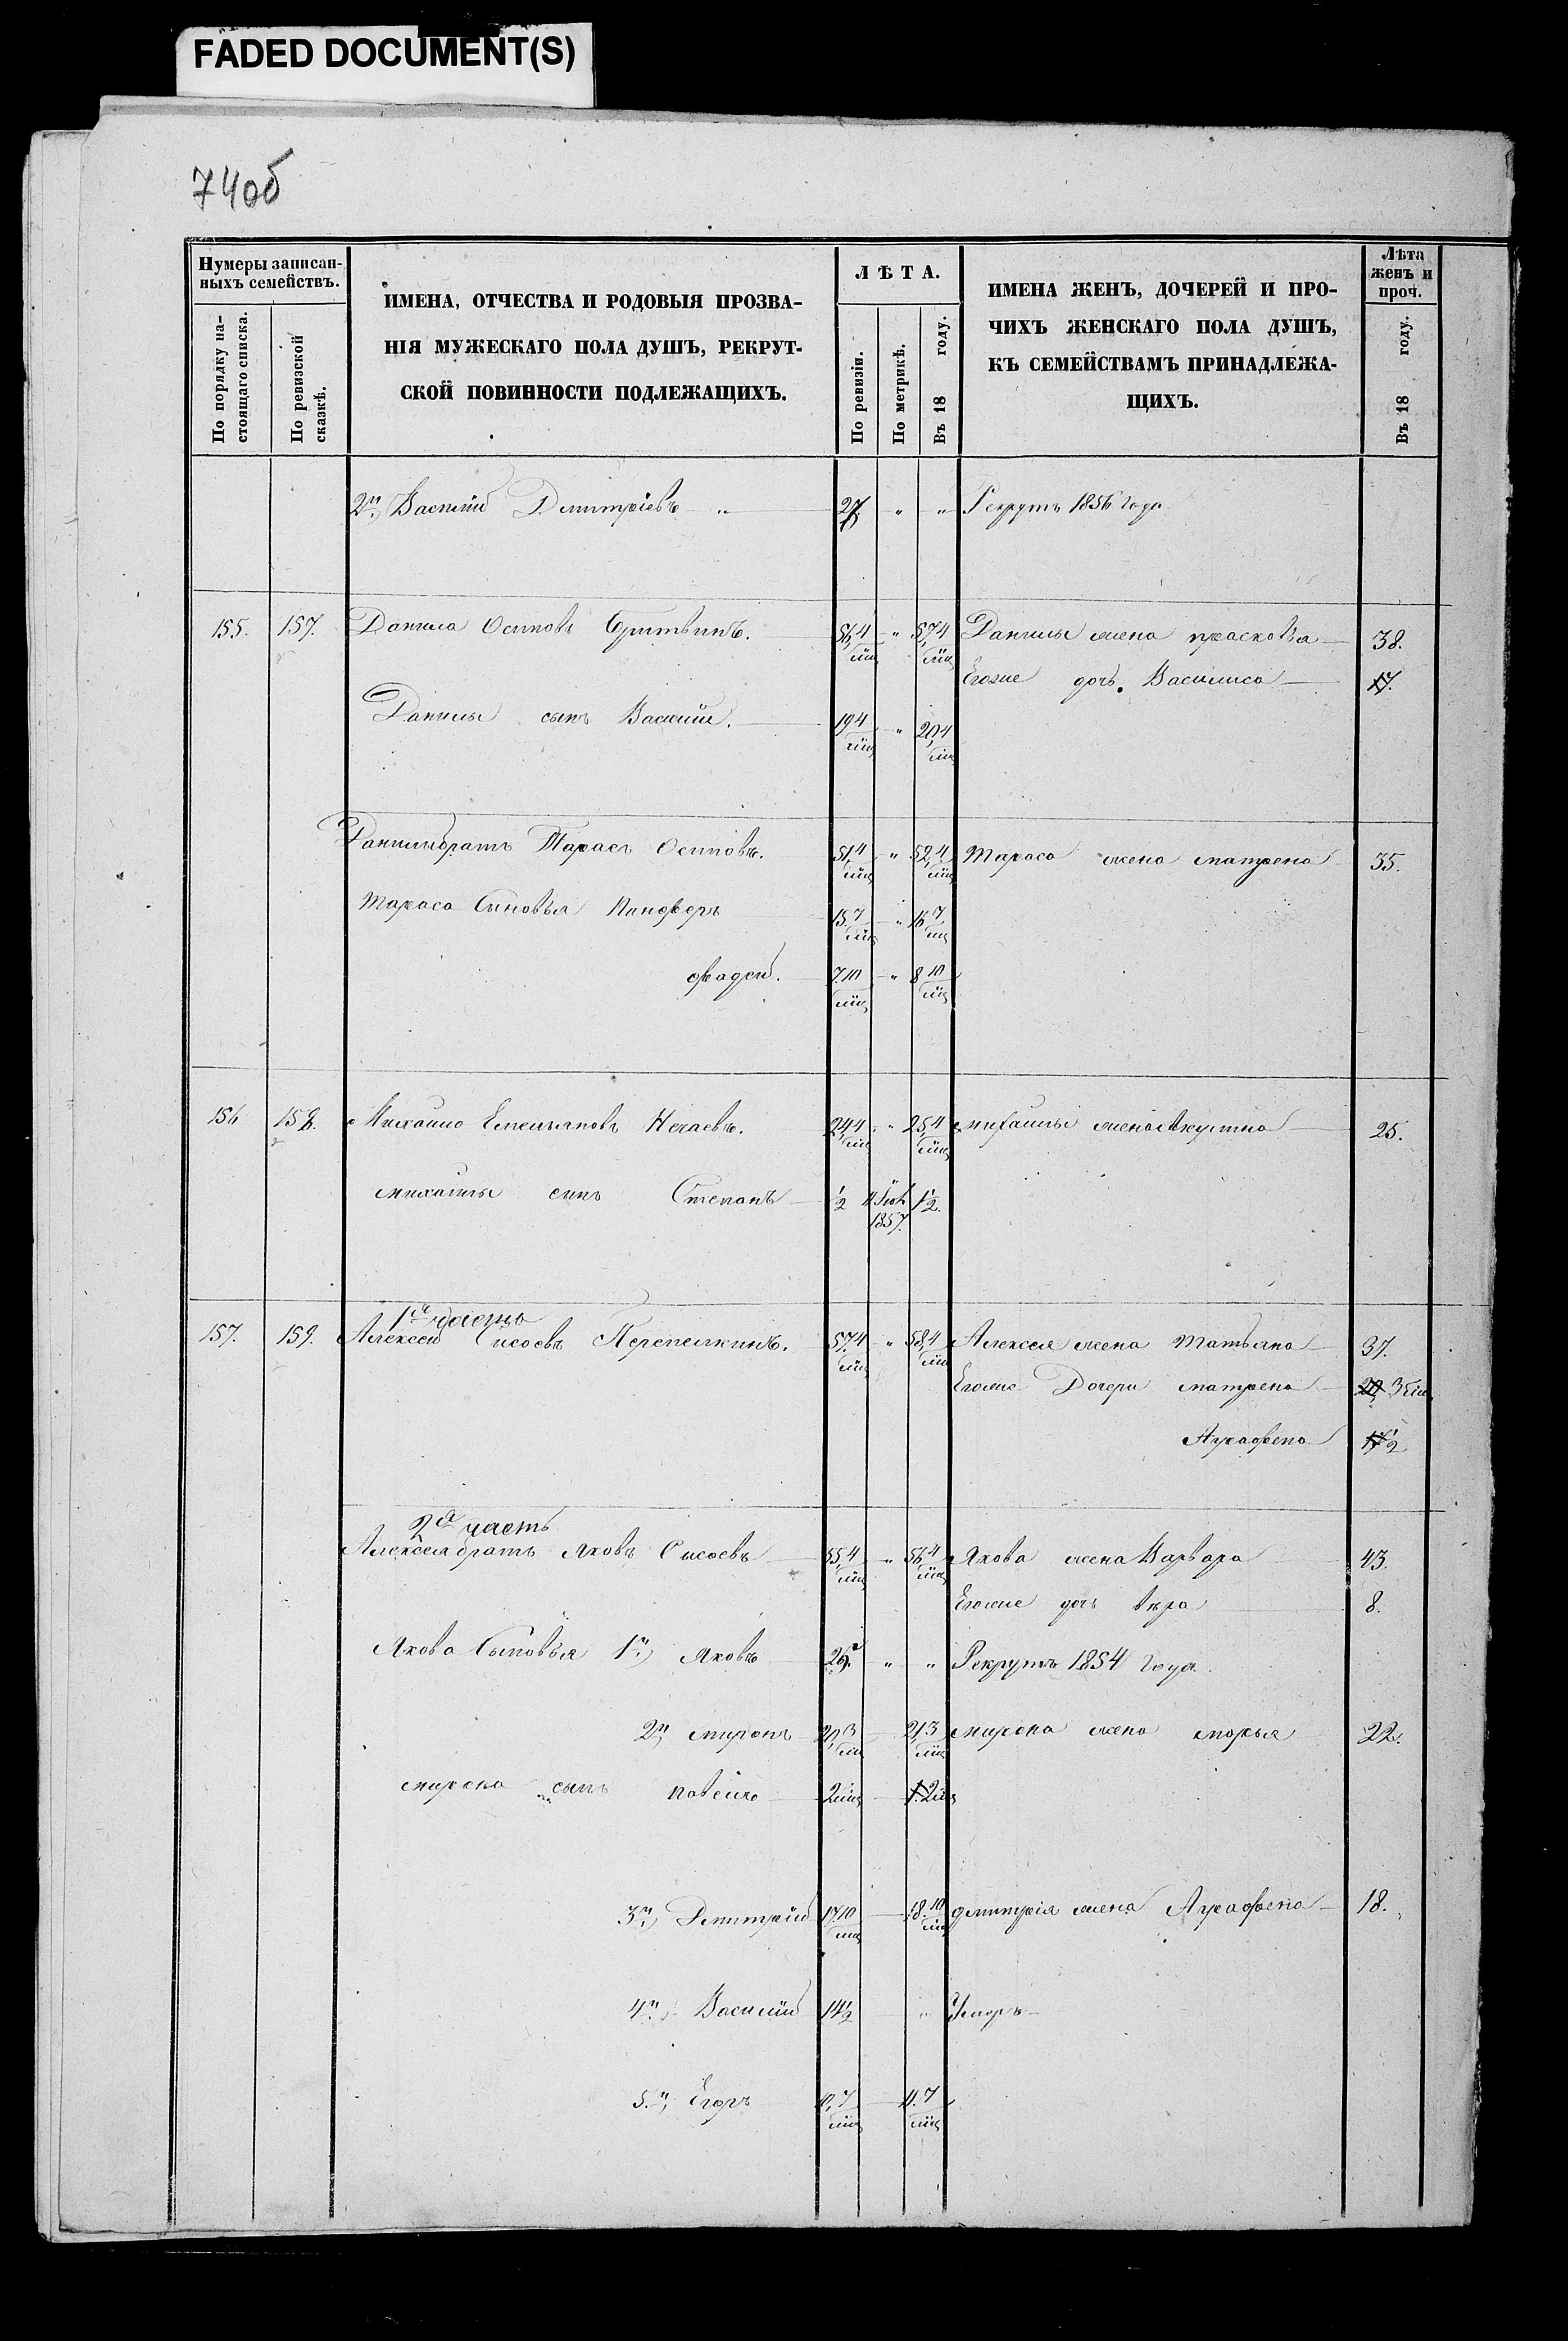 FADED DOCUMENT(S)
74об
Нумеры записан-
ныхъ семействъ.
По порядку на-
стоящаго списка.
По ревизской
сказкѣ.
ИМЕНА, ОТЧЕСТВА И РОДОВЫЯ ПРОЗВА-
НІЯ МУЖЕСКАГО ПОЛА ДУШЪ, РЕКРУТ-
СКОЙ ПОВИННОСТИ ПОДЛЕЖАЩИХЪ.
ЛѢТА.
По ревизіи.
По метрикѣ.
Въ 18 году.
ИМЕНА ЖЕНЪ, ДОЧЕРЕЙ И ПРО-
ЧИХЪ ЖЕНСКАГО ПОЛА ДУШЪ,
КЪ СЕМЕЙСТВАМЪ ПРИНАДЛЕЖА-
ЩИХЪ.
Лѣта
женъ и
проч.
Въ 18 году.
2й, Василій Дмитріевъ " 27. " " Рекрутъ 1856 года
155. 157. Данила Осиповъ 56,4 мц " 57,4 мц Данилы жена прасковья 38.
Егоже дочь Василиса 17.
Данилы сынъ Василій. 19,4 мц " 20,4 мц
Данилы братъ Тарасъ Осиповъ. 51,4 мц " 52,4 мц Тараса жена матрена 35.
Тараса Сыновья Панферъ 15,7 мц " 16,7 мц
фадей. 7,10 мц " 8,10 мц
156 158. Михайло Емельяновъ Нечаевъ. 24,4 мц " 25,4 мц михайлы жена Акулина 25.
михайлы сынъ Степанъ ½ 1857. 1½.
1я часть
157. 159. Алексей Сысоевъ Перепелкинъ. 57,4 мц " 58,4 мц Алексея жена Татьяна 37.
Егоже Дочери матрена 20
Аграфена 17½
2я часть
Алексея братъ Яковъ Сысоевъ 55,4 мц " 56,4 мц Якова жена Варвара 43.
Егоже дочь вера 8.
Якова Сыновья 1й, Яковъ 26. " " Рекрутъ 1854 Года.
2й, миронъ 20,3 мц 21,3 мц мирона жена марья 22.
мирона сынъ павелъ 2 мц 1.2 мц
3й, Дмитрій 17,10 мц 18,10 мц дмитрія жена Аграфена 18.
4й, Василій 14½ " Умеръ
5й, Егоръ 10,7 мц 11,7 мц